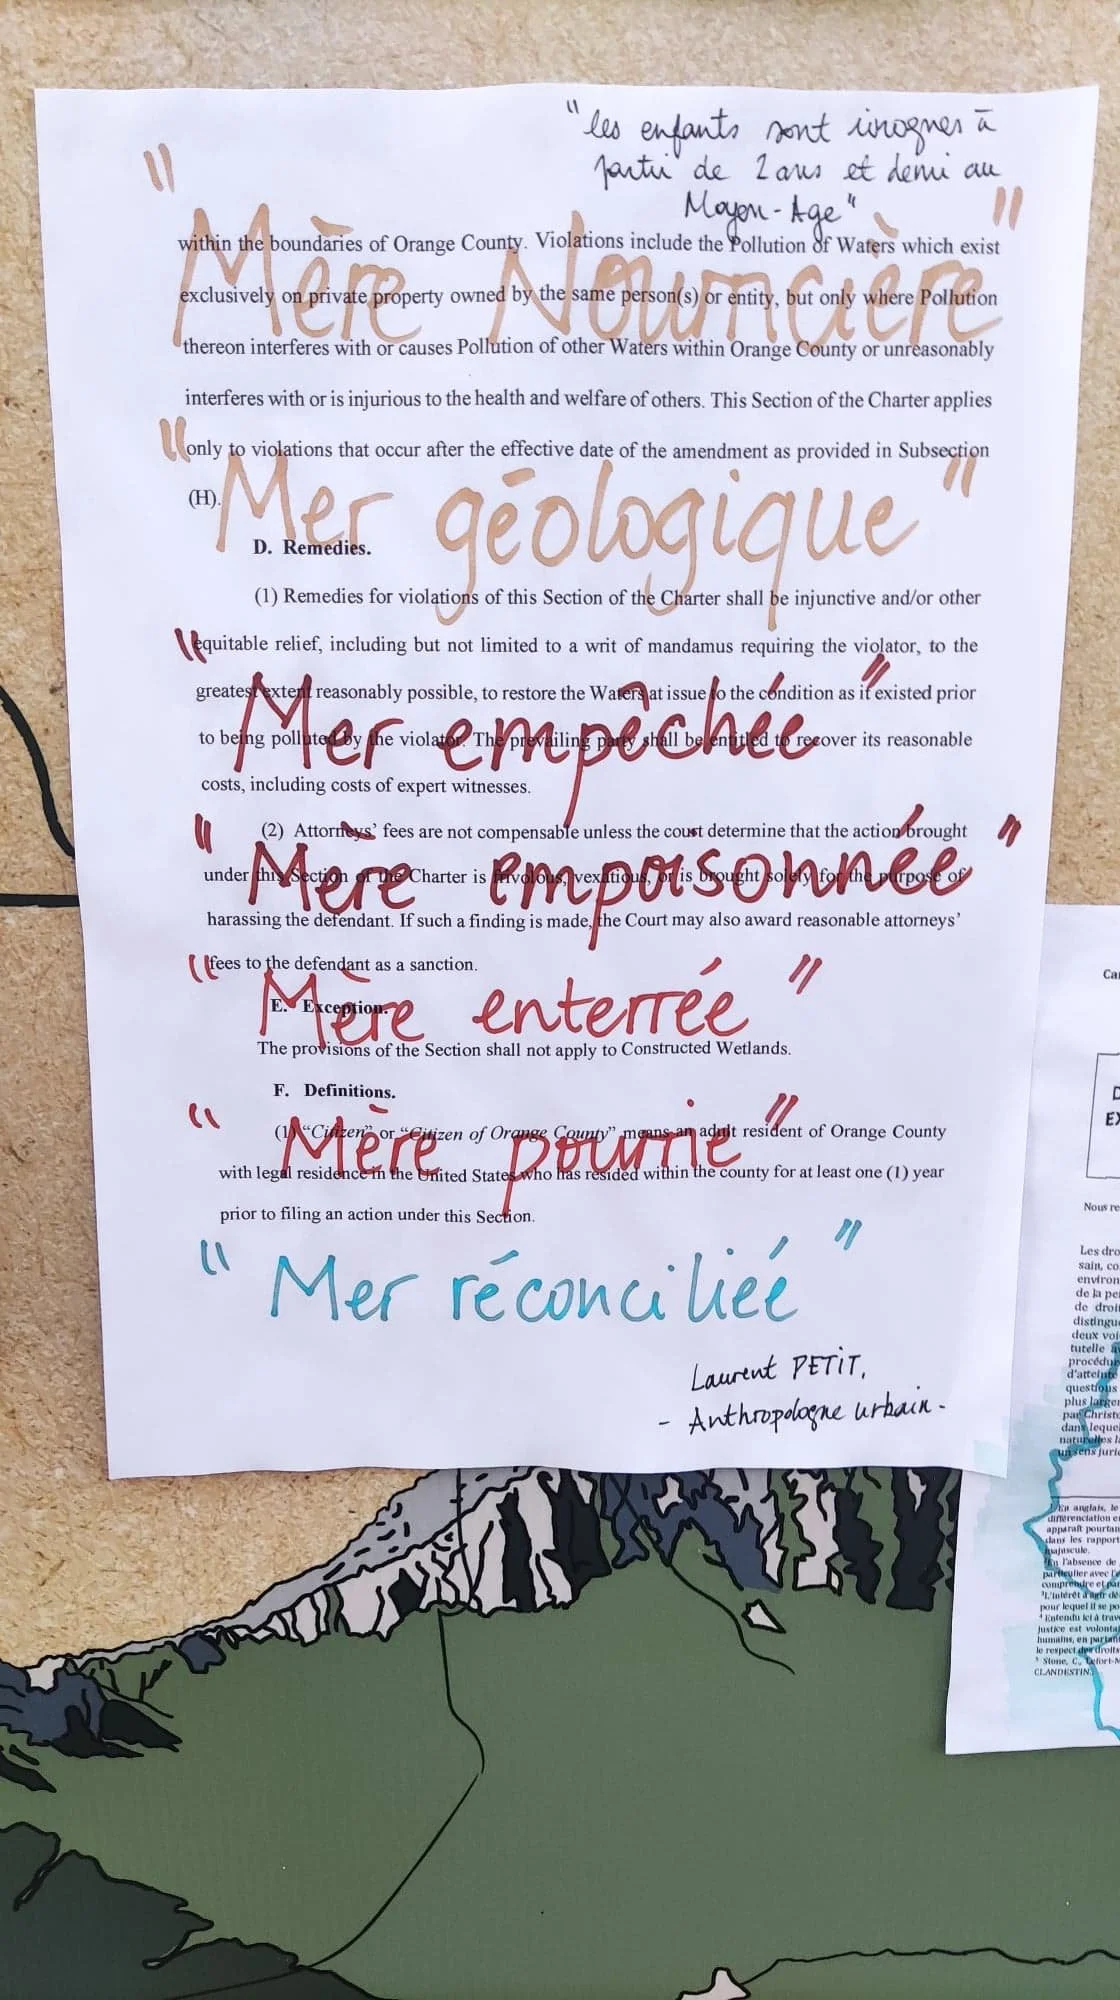 "les enfants sont ivrognes à
partir de 2 ans et demi au
Moyen-Age"
"Mère Nourricière"
within the boundaries of Orange County. Violations include the Pollution of Waters which exist
exclusively on private property owned by the same person(s) or entity, but only where Pollution
thereon interferes with or causes Pollution of other Waters within Orange County or unreasonably
interferes with or is injurious to the health and welfare of others. This Section of the Charter applies
only to violations that occur after the effective date of the amendment as provided in Subsection
(H).
"Mer géologique"
D. Remedies.
(1) Remedies for violations of this Section of the Charter shall be injunctive and/or other
equitable relief, including but not limited to a writ of mandamus requiring the violator, to the
greatest extent reasonably possible, to restore the Waters at issue to the condition as it existed prior
"Mer empêchée"
to being polluted by the violator. The prevailing party shall be entitled to recover its reasonable
costs, including costs of expert witnesses.
(2) Attorneys' fees are not compensable unless the court determine that the action brought
"Mère empoisonnée"
under this Section of the Charter is frivolous, vexatious, or is brought solely for the purpose of
harassing the defendant. If such a finding is made, the Court may also award reasonable attorneys'
fees to the defendant as a sanction.
"Mère enterrée"
E. Exception.
The provisions of the Section shall not apply to Constructed Wetlands.
F. Definitions.
"Mère pourrie"
(1) "Citizen" or "Citizen of Orange County" means an adult resident of Orange County
with legal residence in the United States who has resided within the county for at least one (1) year
prior to filing an action under this Section.
"Mer réconciliée"
Laurent PETIT,
- Anthropologue urbain -
Nous re
Les dro
sain, co
environ
de la pe
de droi
distingu
deux voi
tutelle a
procédu
d'atteinte
questions
plus larger
par Christo
dans leque
naturelles la
un sens juri
En anglais, le
différenciation e
apparaît pourtan
dans les rapport
majuscule.
En l'absence de
particulier avec l'e
comprendre et par
L'intérêt à agir dé
pour lequel il se po
Entendu ici à trav
justice est volonta
humains, en partant
le respect des droits
Stone, C., Lefort-M
CLANDESTIN